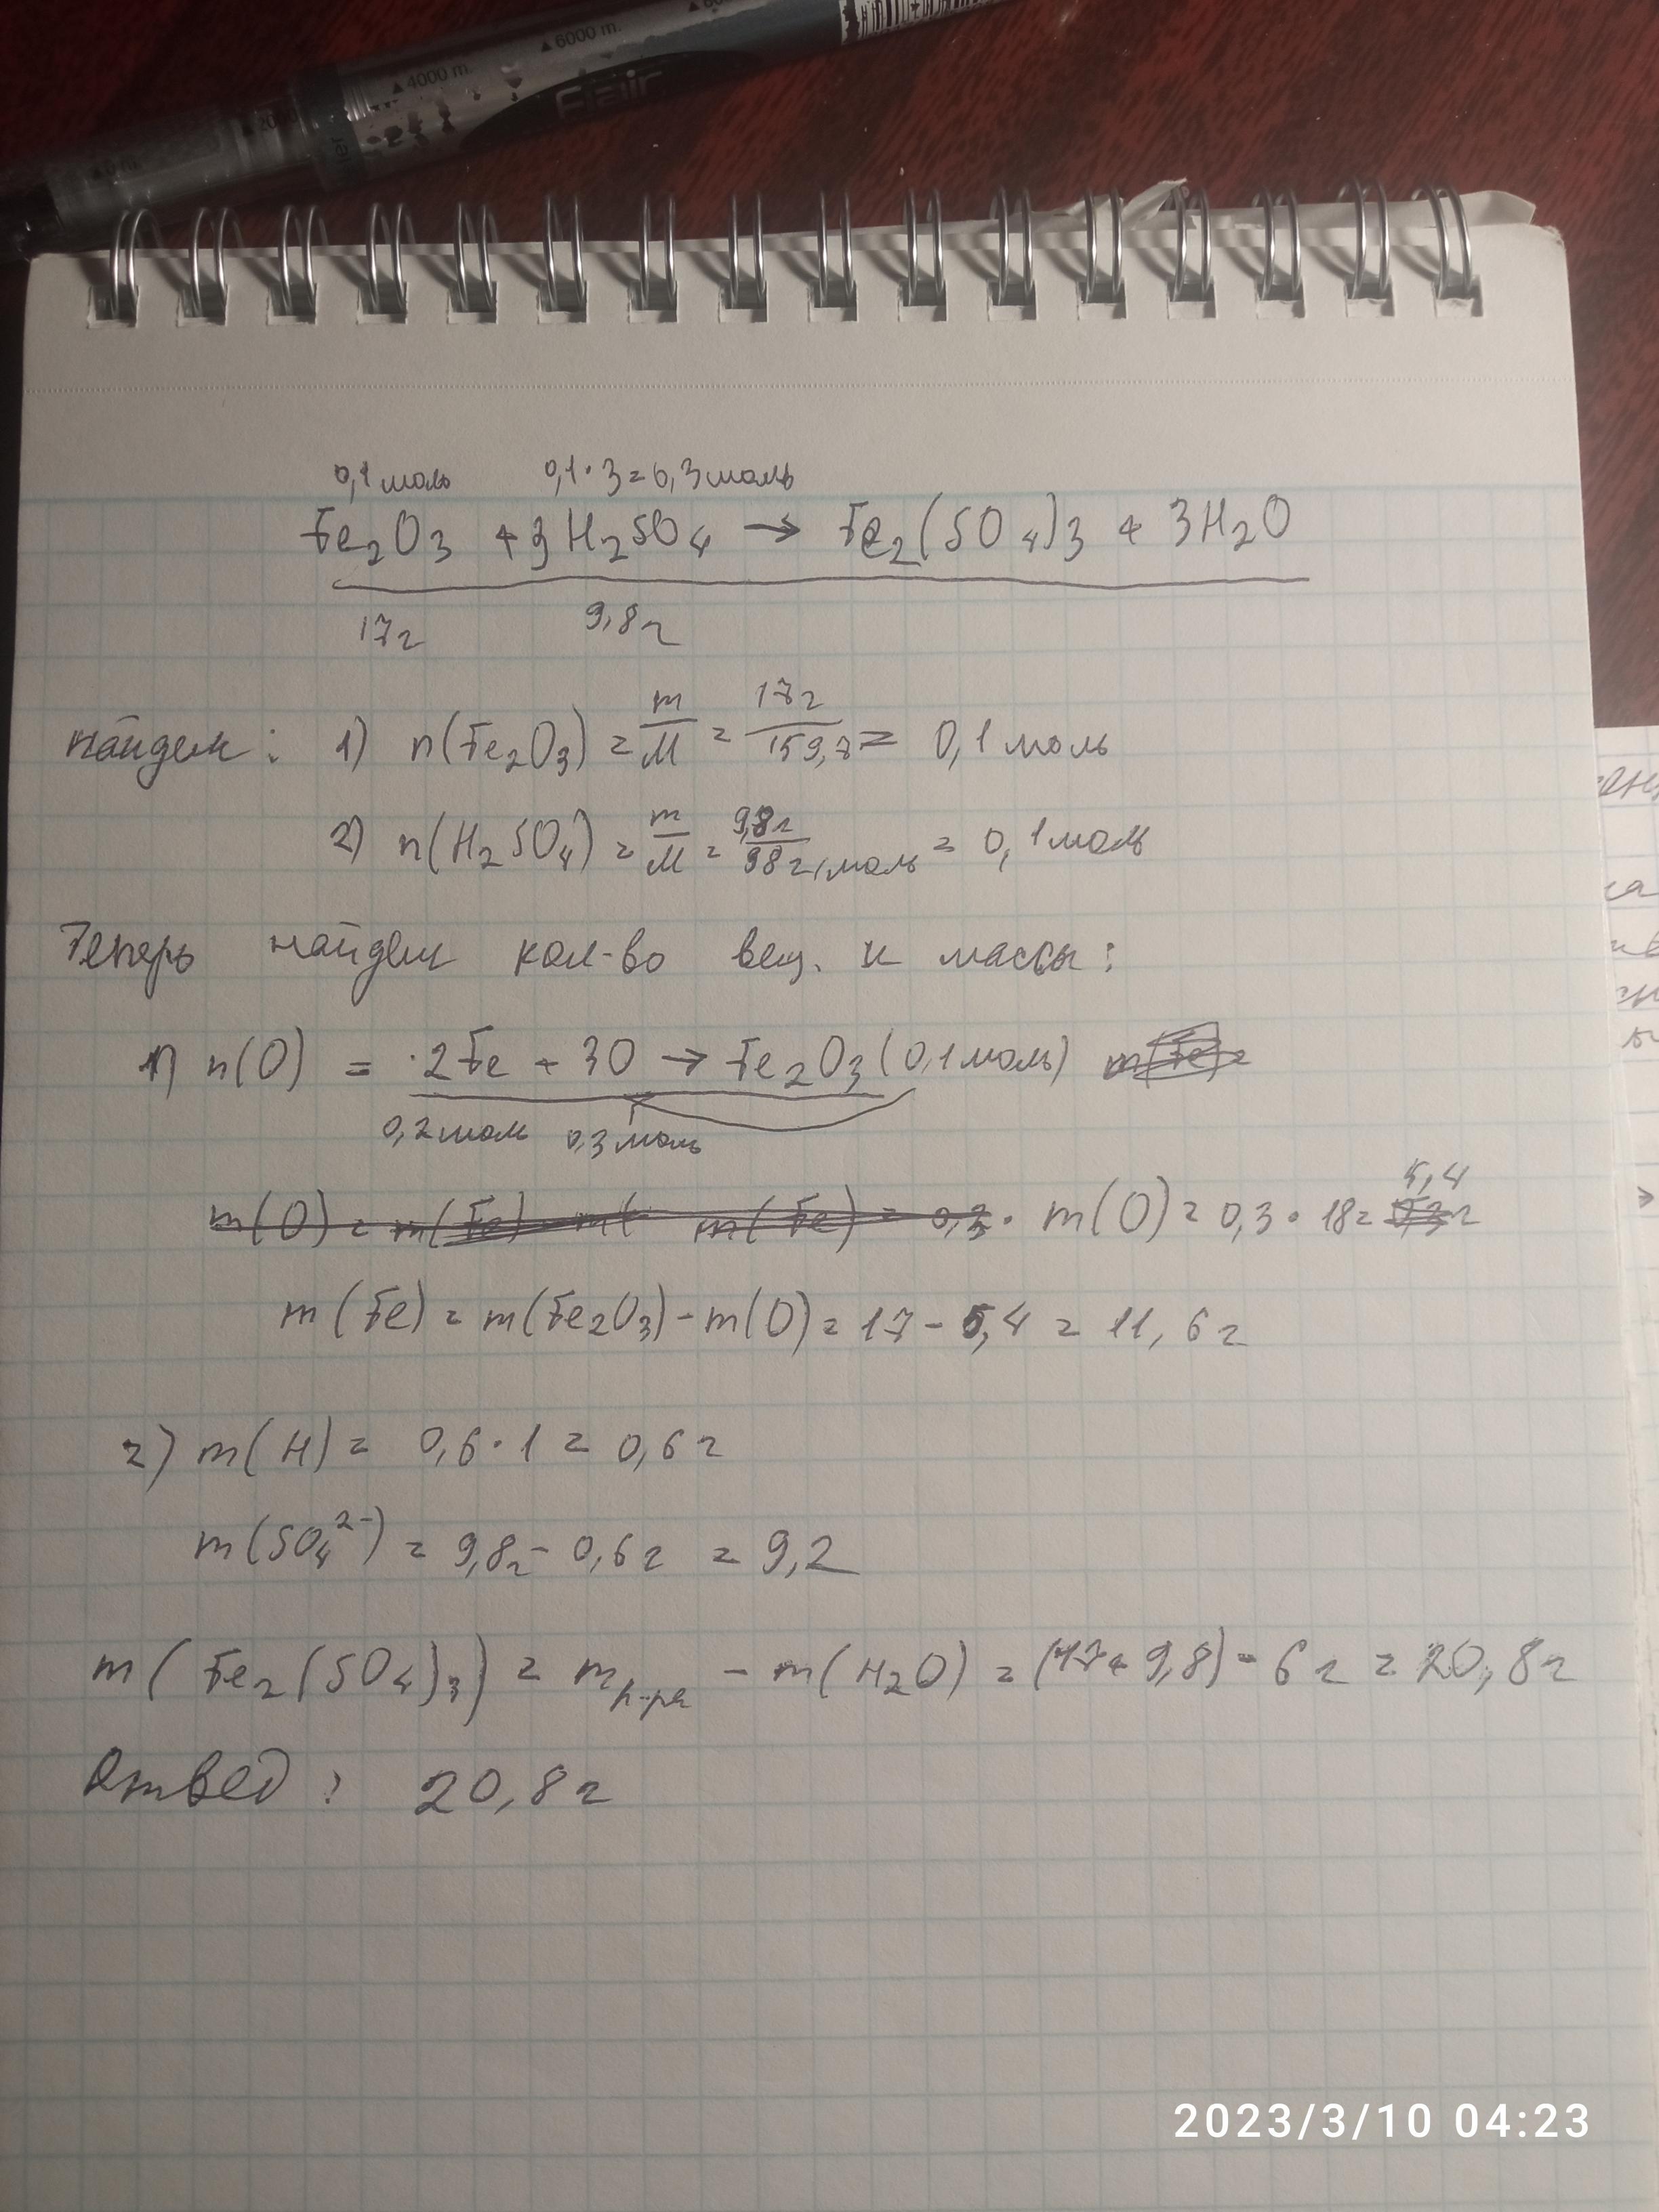 ▲4000 m.
▲6000 m.
Flair
0,1 моль 0,1·3=0,3 моль
Fe₂O₃ + 3H₂SO₄ → Fe₂(SO₄)3 + 3H₂O
17г 9,8г
найдем: 1) n(Fe₂O₃) = m/M = 17г/159,7 = 0,1 моль
2) n(H₂SO₄) = m/M = 9,8г/98г/моль = 0,1 моль
Теперь найдем кол-во вещ. и массы:
1) n(O) = 2Fe + 3O → Fe₂O₃ (0,1 моль)
0,2 моль 0,3 моль
m(O) = 0,3 · 18 = 5,4 г
m(Fe) = m(Fe₂O₃) - m(O) = 17 - 5,4 = 11,6 г
2) m(H) = 0,6 · 1 = 0,6 г
m(SO₄²⁻) = 9,8г - 0,6г = 9,2
m(Fe₂(SO₄)₃) = m р-ра - m(H₂O) = (17 + 9,8) - 6г = 20,8г
Ответ: 20,8г
2023/3/10 04:23